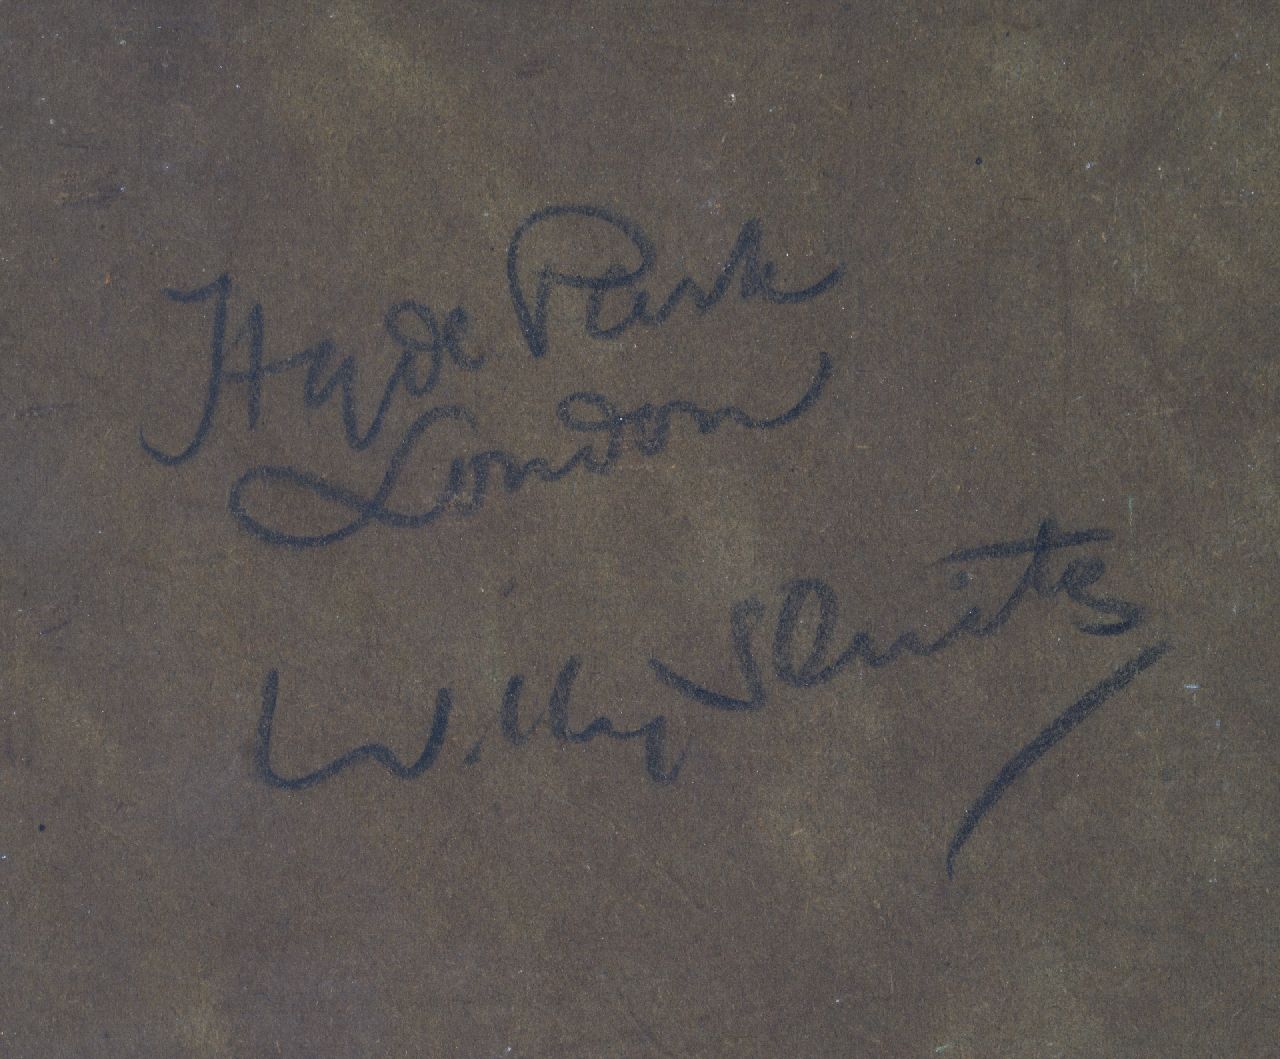 Hyde Park
London
Willy Sluiter